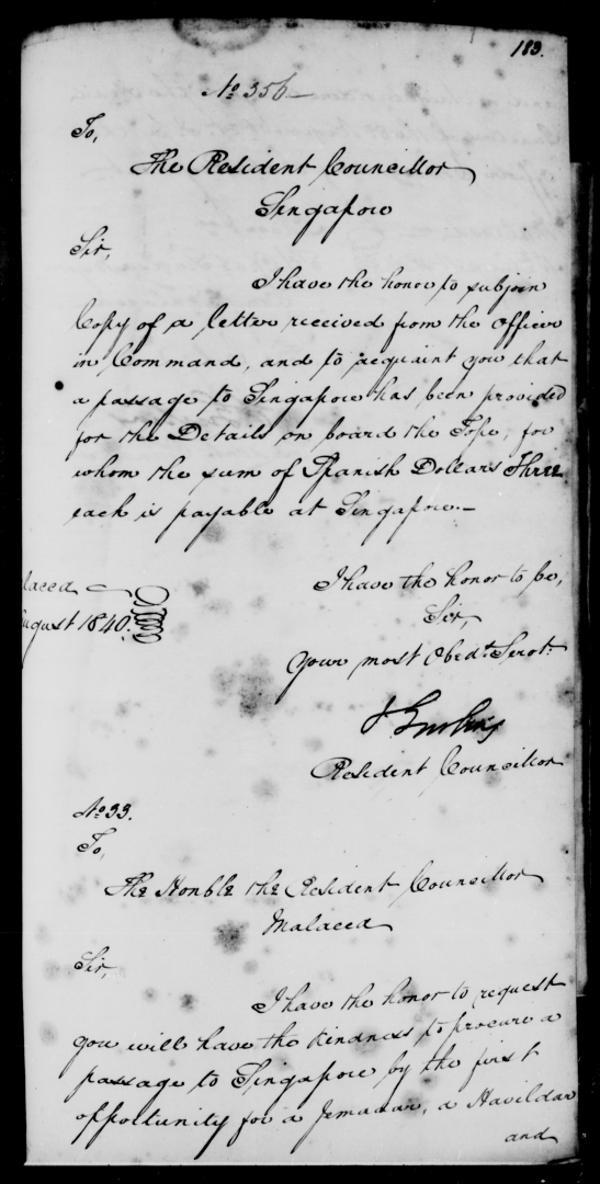 183.
No. 356
To,
The Resident Councillor
Singapore
Sir,
I have the honor to subjoin
Copy of a letter received from the Officer
in Command, and to acquaint you that
a passage to Singapore has been provided
for the Details on board the Tope, for
whom the sum of Spanish Dollars Three
each is payable at Singapore.—
lacca
ugust 1840.
I have the honor to be,
Sir,
Your most Obedt. Servt.
Resident Councillor
No. 33.
To,
The Honble the Resident Councillor
Malacca
Sir,
I have the honor to request
you will have the kindness to procure a
passage to Singapore by the first
opportunity for a Jemadar, a Havildar
and